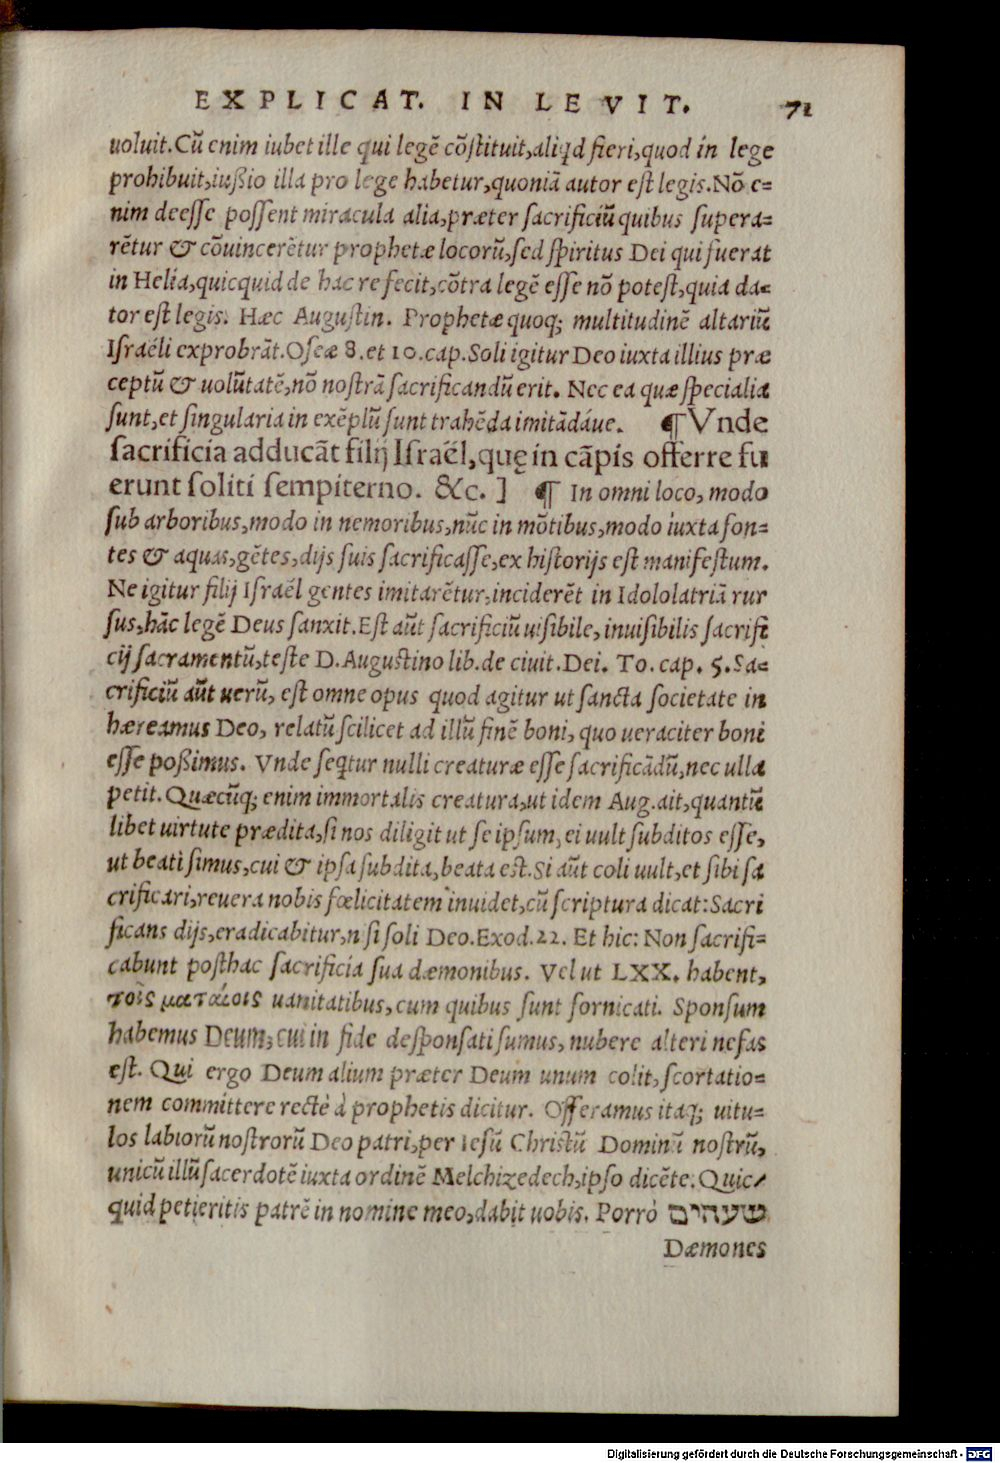 EXPLICAT. IN LEVIT. 71
uoluit.Cũ enim iubet ille qui legẽ cõstituit,aliqd fieri,quod in lege
prohibuit,iußio illa pro lege habetur,quoniã autor est legis.Nõ e=
nim deesse possent miracula alia,præter sacrificiũ quibus supera=
rẽtur & cõuincerẽtur prophetæ locorũ,sed spiritus Dei qui fuerat
in Helia,quicquid de hac re fecit,cõtra legẽ esse nõ potest,quia da=
tor est legis. Hæc Augustin. Prophetæ quoq; multitudinẽ altariũ
Israéli exprobrãt.Oseæ 8.et 10.cap.Soli igitur Deo iuxta illius præ
ceptũ & uolũtatẽ,nõ nostrã sacrificandũ erit. Nec ea quæ specialia
sunt,et singularia in exẽplũ sunt trahẽda imitãdáue. ¶ Vnde
sacrificia adducãt filij Israél,quę in cãpis offerre fu
erunt soliti sempiterno. &c. ] ¶ In omni loco, modo
sub arboribus,modo in nemoribus,nũc in mõtibus,modo iuxta fon=
tes & aquas,gẽtes,dijs suis sacrificasse,ex historijs est manifestum.
Ne igitur filij Israél gentes imitarẽtur,inciderẽt in Idololatriã rur
sus,hãc legẽ Deus sanxit.Est aũt sacrificiũ uisibile, inuisibilis sacrifi
cij sacramentũ,teste D.Augustino lib.de ciuit.Dei. To. cap. 5.Sa=
crificiũ aũt uerũ, est omne opus quod agitur ut sancta societate in
hæreamus Deo, relatũ scilicet ad illũ finẽ boni, quo ueraciter boni
esse poßimus. Vnde seqtur nulli creaturæ esse sacrificãdũ,nec ulla
petit.Quæcũq; enim immortalis creatura,ut idem Aug.ait,quantũ
libet uirtute prædita,si nos diligit ut se ipsum, ei uult subditos esse,
ut beati simus,cui & ipsa subdita, beata est.Si aũt coli uult,et sibi sa
crificari,reuera nobis fœlicitatem inuidet,cũ scriptura dicat:Sacri
ficans dijs,eradicabitur,n si soli Deo.Exod.22. Et hic: Non sacrifi=
cabunt posthac sacrificia sua dæmonibus. Vel ut LXX. habent,
τοῖς ματαίοις uanitatibus,cum quibus sunt fornicati. Sponsum
habemus Deum, cui in fide desponsati sumus, nubere alteri nefas
est. Qui ergo Deum alium præter Deum unum colit, scortatio=
nem committere rectè à prophetis dicitur. Offeramus itaq; uitu=
los labiorũ nostrorũ Deo patri,per Iesũ Christũ Dominũ nostrũ,
unicũ illũ sacerdotẽ iuxta ordinẽ Melchizedech,ipso dicẽte.Quic/
quid petieritis patrẽ in nomine meo,dabit uobis. Porrò שעהים
Dæmones
Digitalisierung gefördert durch die Deutsche Forschungsgemeinschaft - DFG